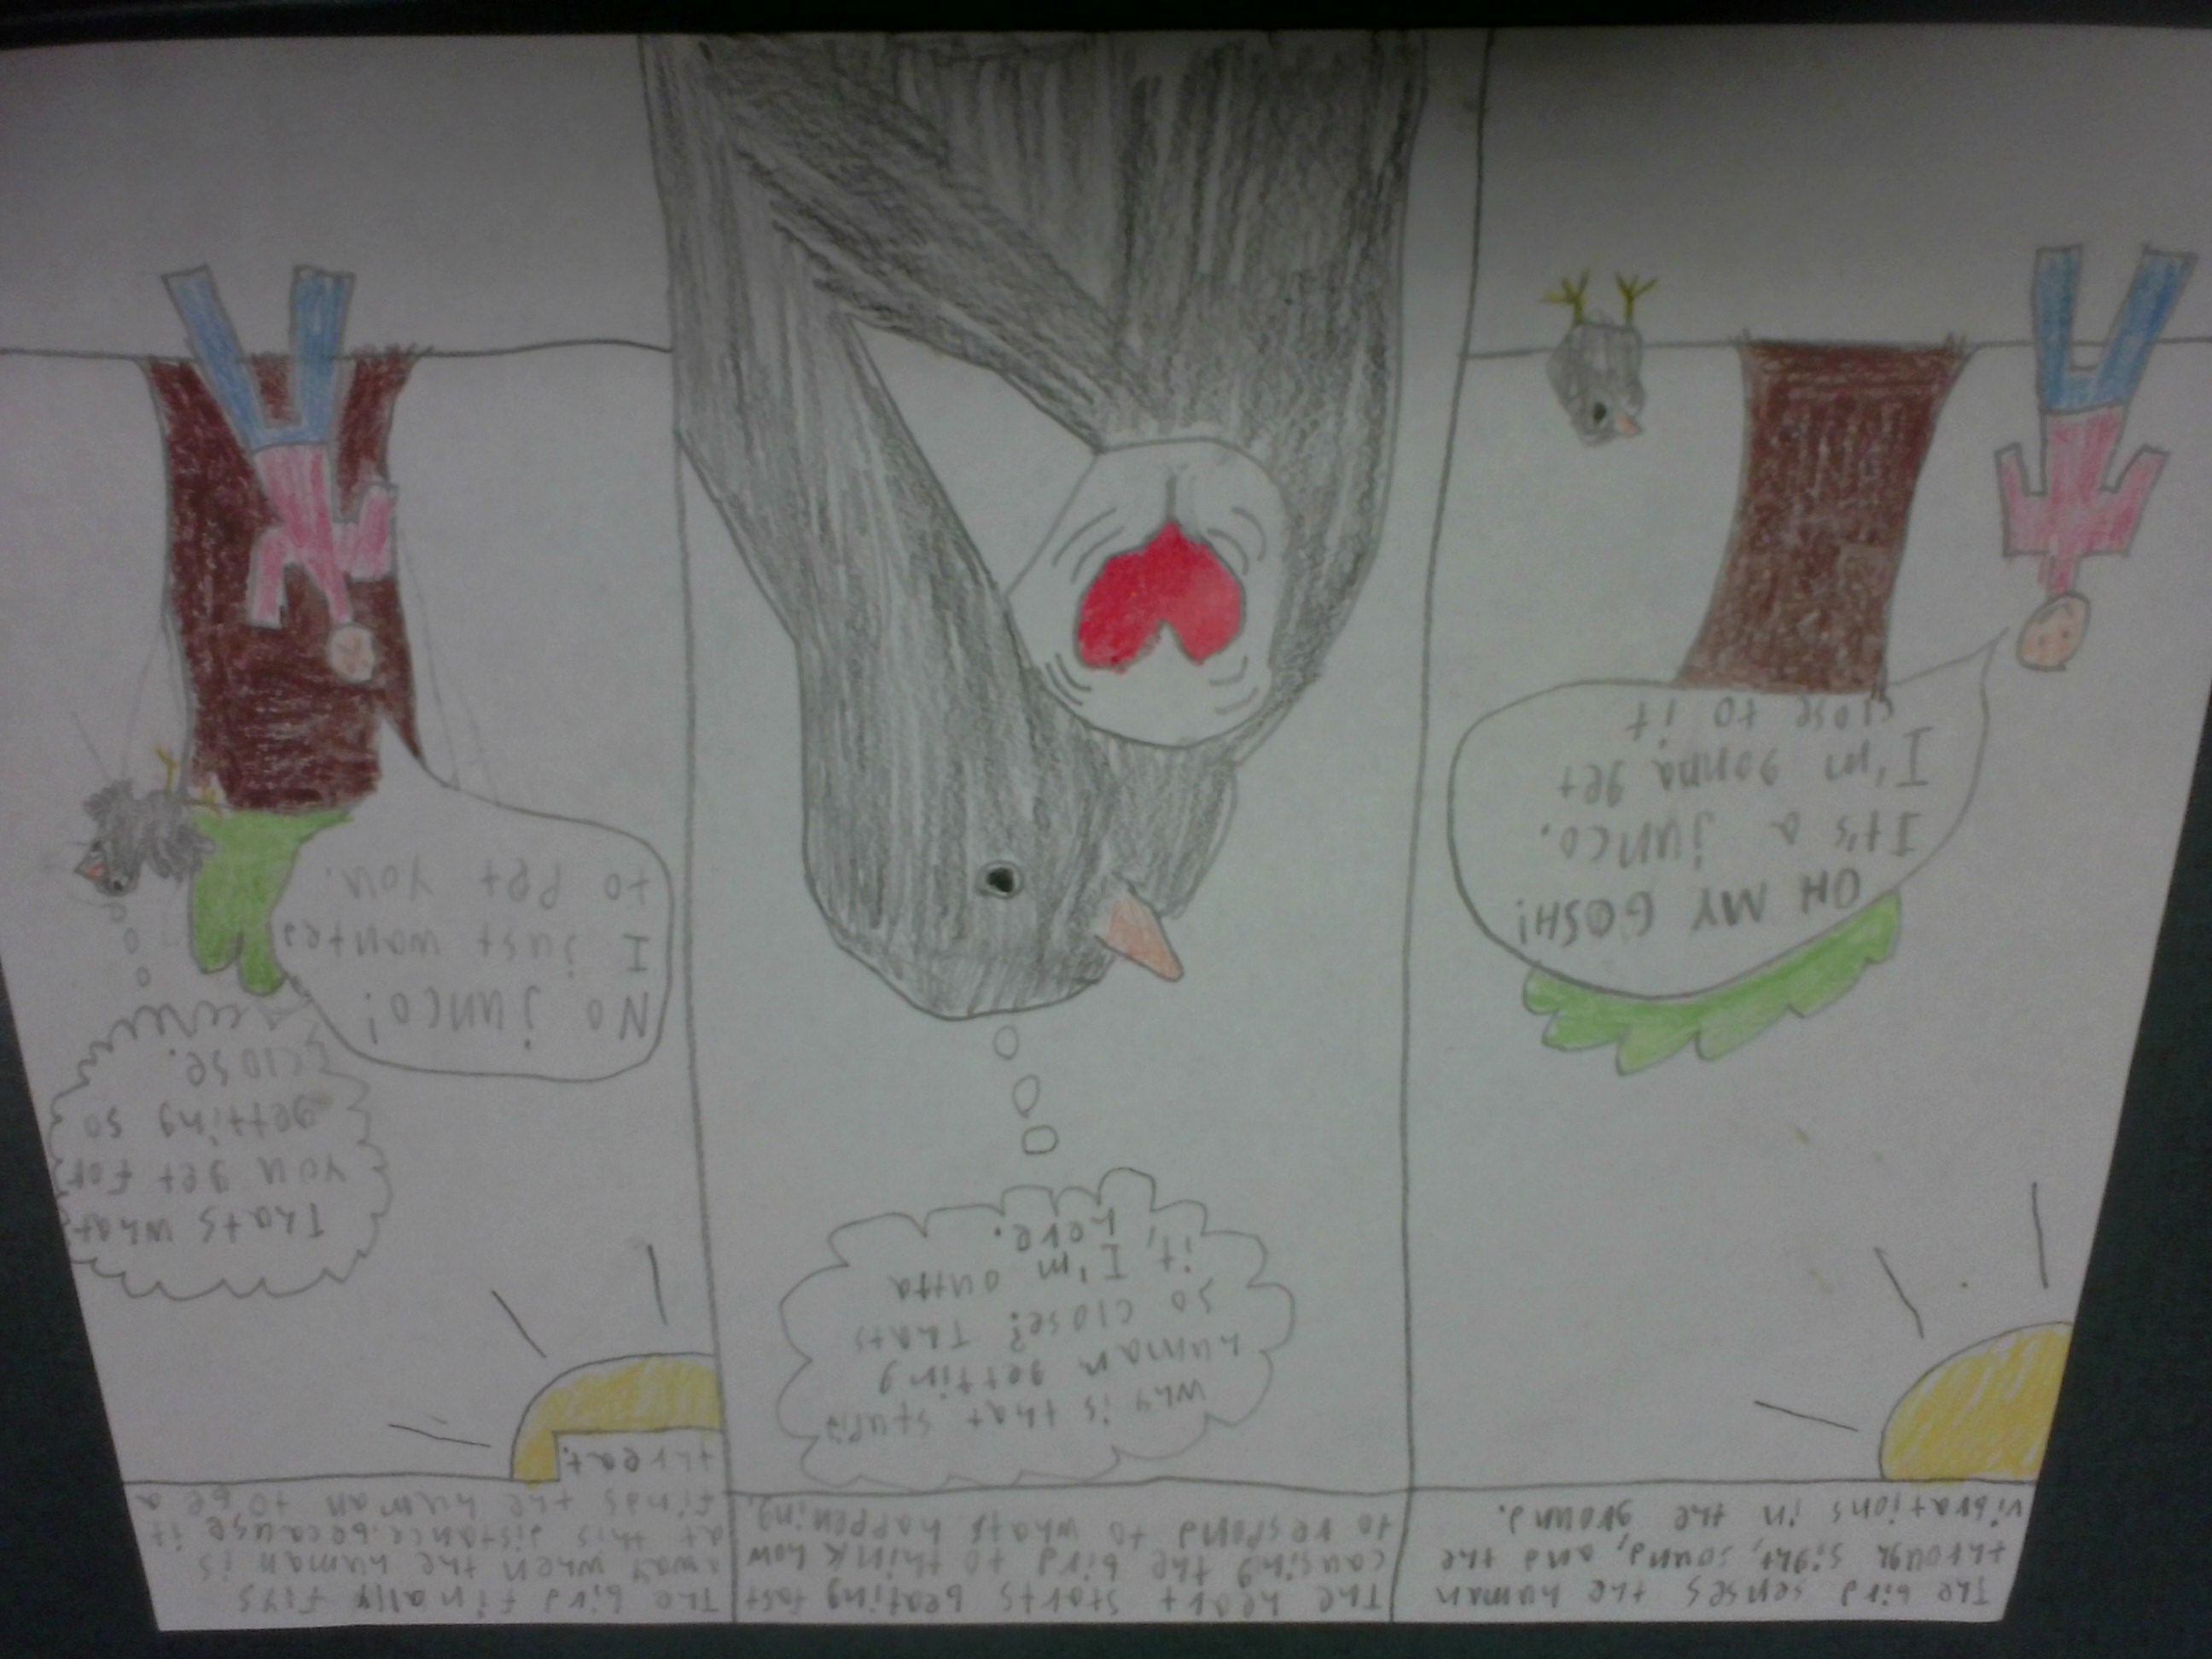 The bird senses the human
through sight, sound, and the
vibrations in the ground.
OH MY GOSH!
It's a junco.
I'm gonna get
close to it
The heart starts beating fast
causing the bird to think how
to respond to whats happening.
Why is that stupid
human getting
so close? Thats
it, I'm outta
here.
The bird finally flys
away when the human is
at this distance because it
finds the human to be a
threat.
Thats what
you get for
getting so
close.
No junco!
I just wanted
to pet you.